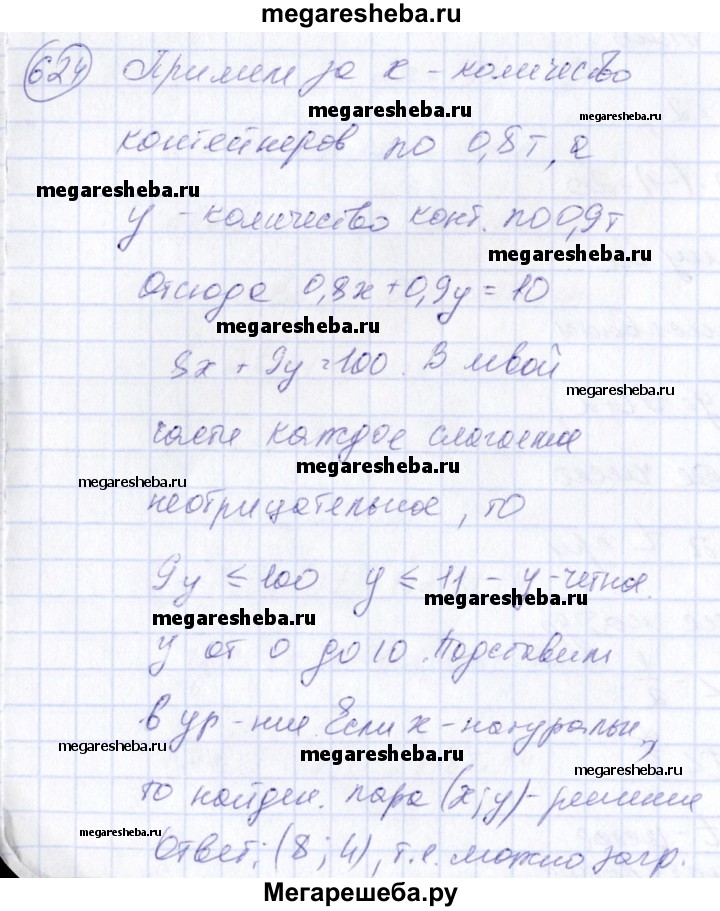 megaresheba.ru
624 Примем за x - количество
megaresheba.ru megaresheba.ru
контейнеров по 0,8т, а
megaresheba.ru
y - количество конт. по 0,9т
megaresheba.ru
Отсюда 0,8x + 0,9y = 10
megaresheba.ru
8x + 9y = 100. В левой
megaresheba.ru
части каждое слагаемое
megaresheba.ru
megaresheba.ru
неотрицательное, то
9y ≤ 100 y ≤ 11 - y - четное.
megaresheba.ru
megaresheba.ru
y от 0 до 10. Подставим
в ур-ние. Если x - натуральн.,
megaresheba.ru megaresheba.ru
megaresheba.ru
то найден. пара (x; y) - решение
megaresheba.ru megaresheba.ru
Ответ: (8; 4), т.е. можно загр.
Мегарешеба.ру